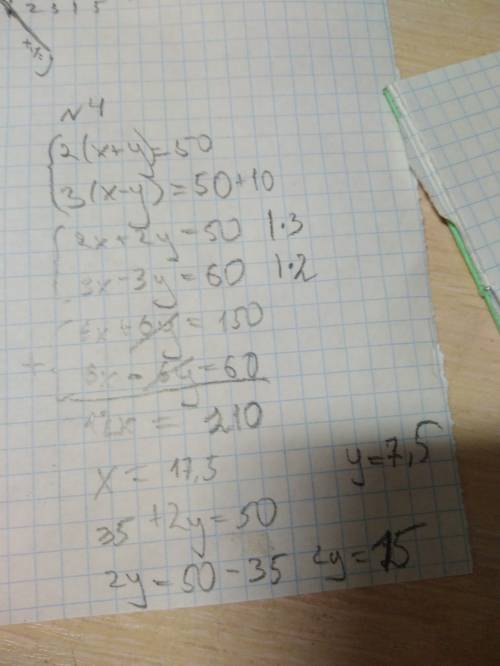 2 3 1 5
№4
2(x+y)=50
3(x-y)=50+10
2x+2y=50 |·3
3x-3y=60 |·2
6x+6y=150
+ 6x-6y=60
12x = 210
x = 17,5
y=7,5
35 +2y=50
2y=50-35 2y=15